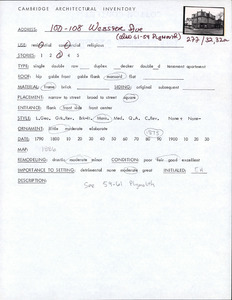 CAMBRIDGE ARCHITECTURAL INVENTORY
ADDRESS: 100-108 Webster Ave
(also 51-59 Plymouth)
277/32,32a
USE: residential commercial religious
STORIES: 1 2 3 4
TYPE: single double row duplex decker double d tenement apartment
ROOF: hip gable front gable flank mansard flat
MATERIAL: frame brick SIDING: original subsequent
PLACEMENT: narrow to street broad to street square
ENTRANCE: flank front side front center
STYLE: L.Geo. Grk.Rev. Mans. Med. Q.A. C.Rev. None+ None-
ORNAMENT: little moderate elaborate
DATE: 1790 1800 10 20 30 40 50 60 70 80 90 1900 10 20 30
MAP: 1886
REMODELING: drastic moderate minor CONDITION: poor fair good excellent
IMPORTANCE TO SETTING: detrimental none moderate great INITIALED:
DESCRIPTION:
See 59-61 Plymouth